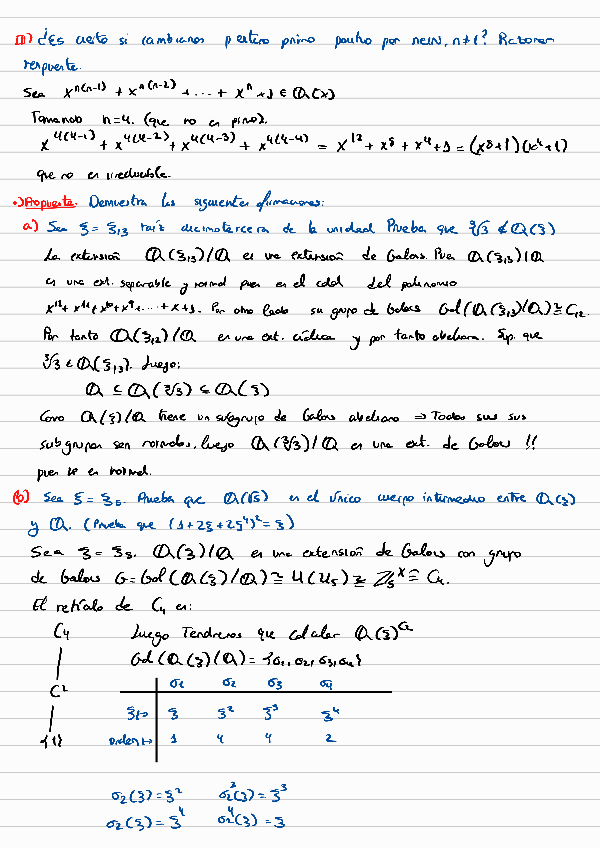 III) ¿Es cierto si cambiamos p entero primo positivo por n∈ℕ, n≠1? Razonar
respuesta.
Sea x^{n(n-1)} + x^{n(n-2)} + ... + x^n + 1 ∈ ℚ(x)
Tomando n=4. (que no es primo).
x^{4(4-1)} + x^{4(4-2)} + x^{4(4-3)} + x^{4(4-4)} = x^{12} + x^8 + x^4 + 1 = (x^8+1)(x^4+1)
que no es irreducible.
•) Propuesta. Demuestra las siguientes afirmaciones:
a) Sea ξ = ξ_{13} raíz decimotercera de la unidad. Prueba que ∛3 ∉ ℚ(ξ)
La extensión ℚ(ξ_{13})/ℚ es una extensión de Galois. Pues ℚ(ξ_{13})/ℚ
es una ext. separable y normal pues es el cdd del polinomio
x^{12}+x^{11}+x^{10}+x^9+...+x+1. Por otro lado su grupo de Galois Gal(ℚ(ξ_{13})/ℚ)≅C_{12}.
Por tanto ℚ(ξ_{13})/ℚ es una ext. cíclica y por tanto abeliana. Sup. que
∛3 ∈ ℚ(ξ_{13}). Luego:
ℚ ⊆ ℚ(∛3) ⊆ ℚ(ξ)
Como ℚ(ξ)/ℚ tiene un subgrupo de Galois abeliano ⇒ Todos sus sus
subgrupos son normales, luego ℚ(∛3)/ℚ es una ext. de Galois !!
pues es normal.
(b) Sea ξ = ξ_5. Prueba que ℚ(√5) es el único cuerpo intermedio entre ℚ(ξ)
y ℚ. (Prueba que (1+2ξ+2ξ^4)^2 = 5)
Sea ξ = ξ_5. ℚ(ξ)/ℚ es una extensión de Galois con grupo
de Galois G = Gal(ℚ(ξ)/ℚ) ≅ U(U_5) ≅ ℤ_5^× ≅ C_4.
El retículo de C_4 es:
C_4 Luego Tendremos que calcular ℚ(ξ)^{C_2}
Gal(ℚ(ξ)/ℚ) = {σ_1, σ_2, σ_3, σ_4}
σ_1 σ_2 σ_3 σ_4
C^2
ξ↦ ξ ξ^2 ξ^3 ξ^4
{1} orden↦ 1 4 4 2
σ_2(ξ) = ξ^2 σ_2^3(ξ) = ξ^3
σ_2(ξ) = ξ^4 σ_2^4(ξ) = ξ